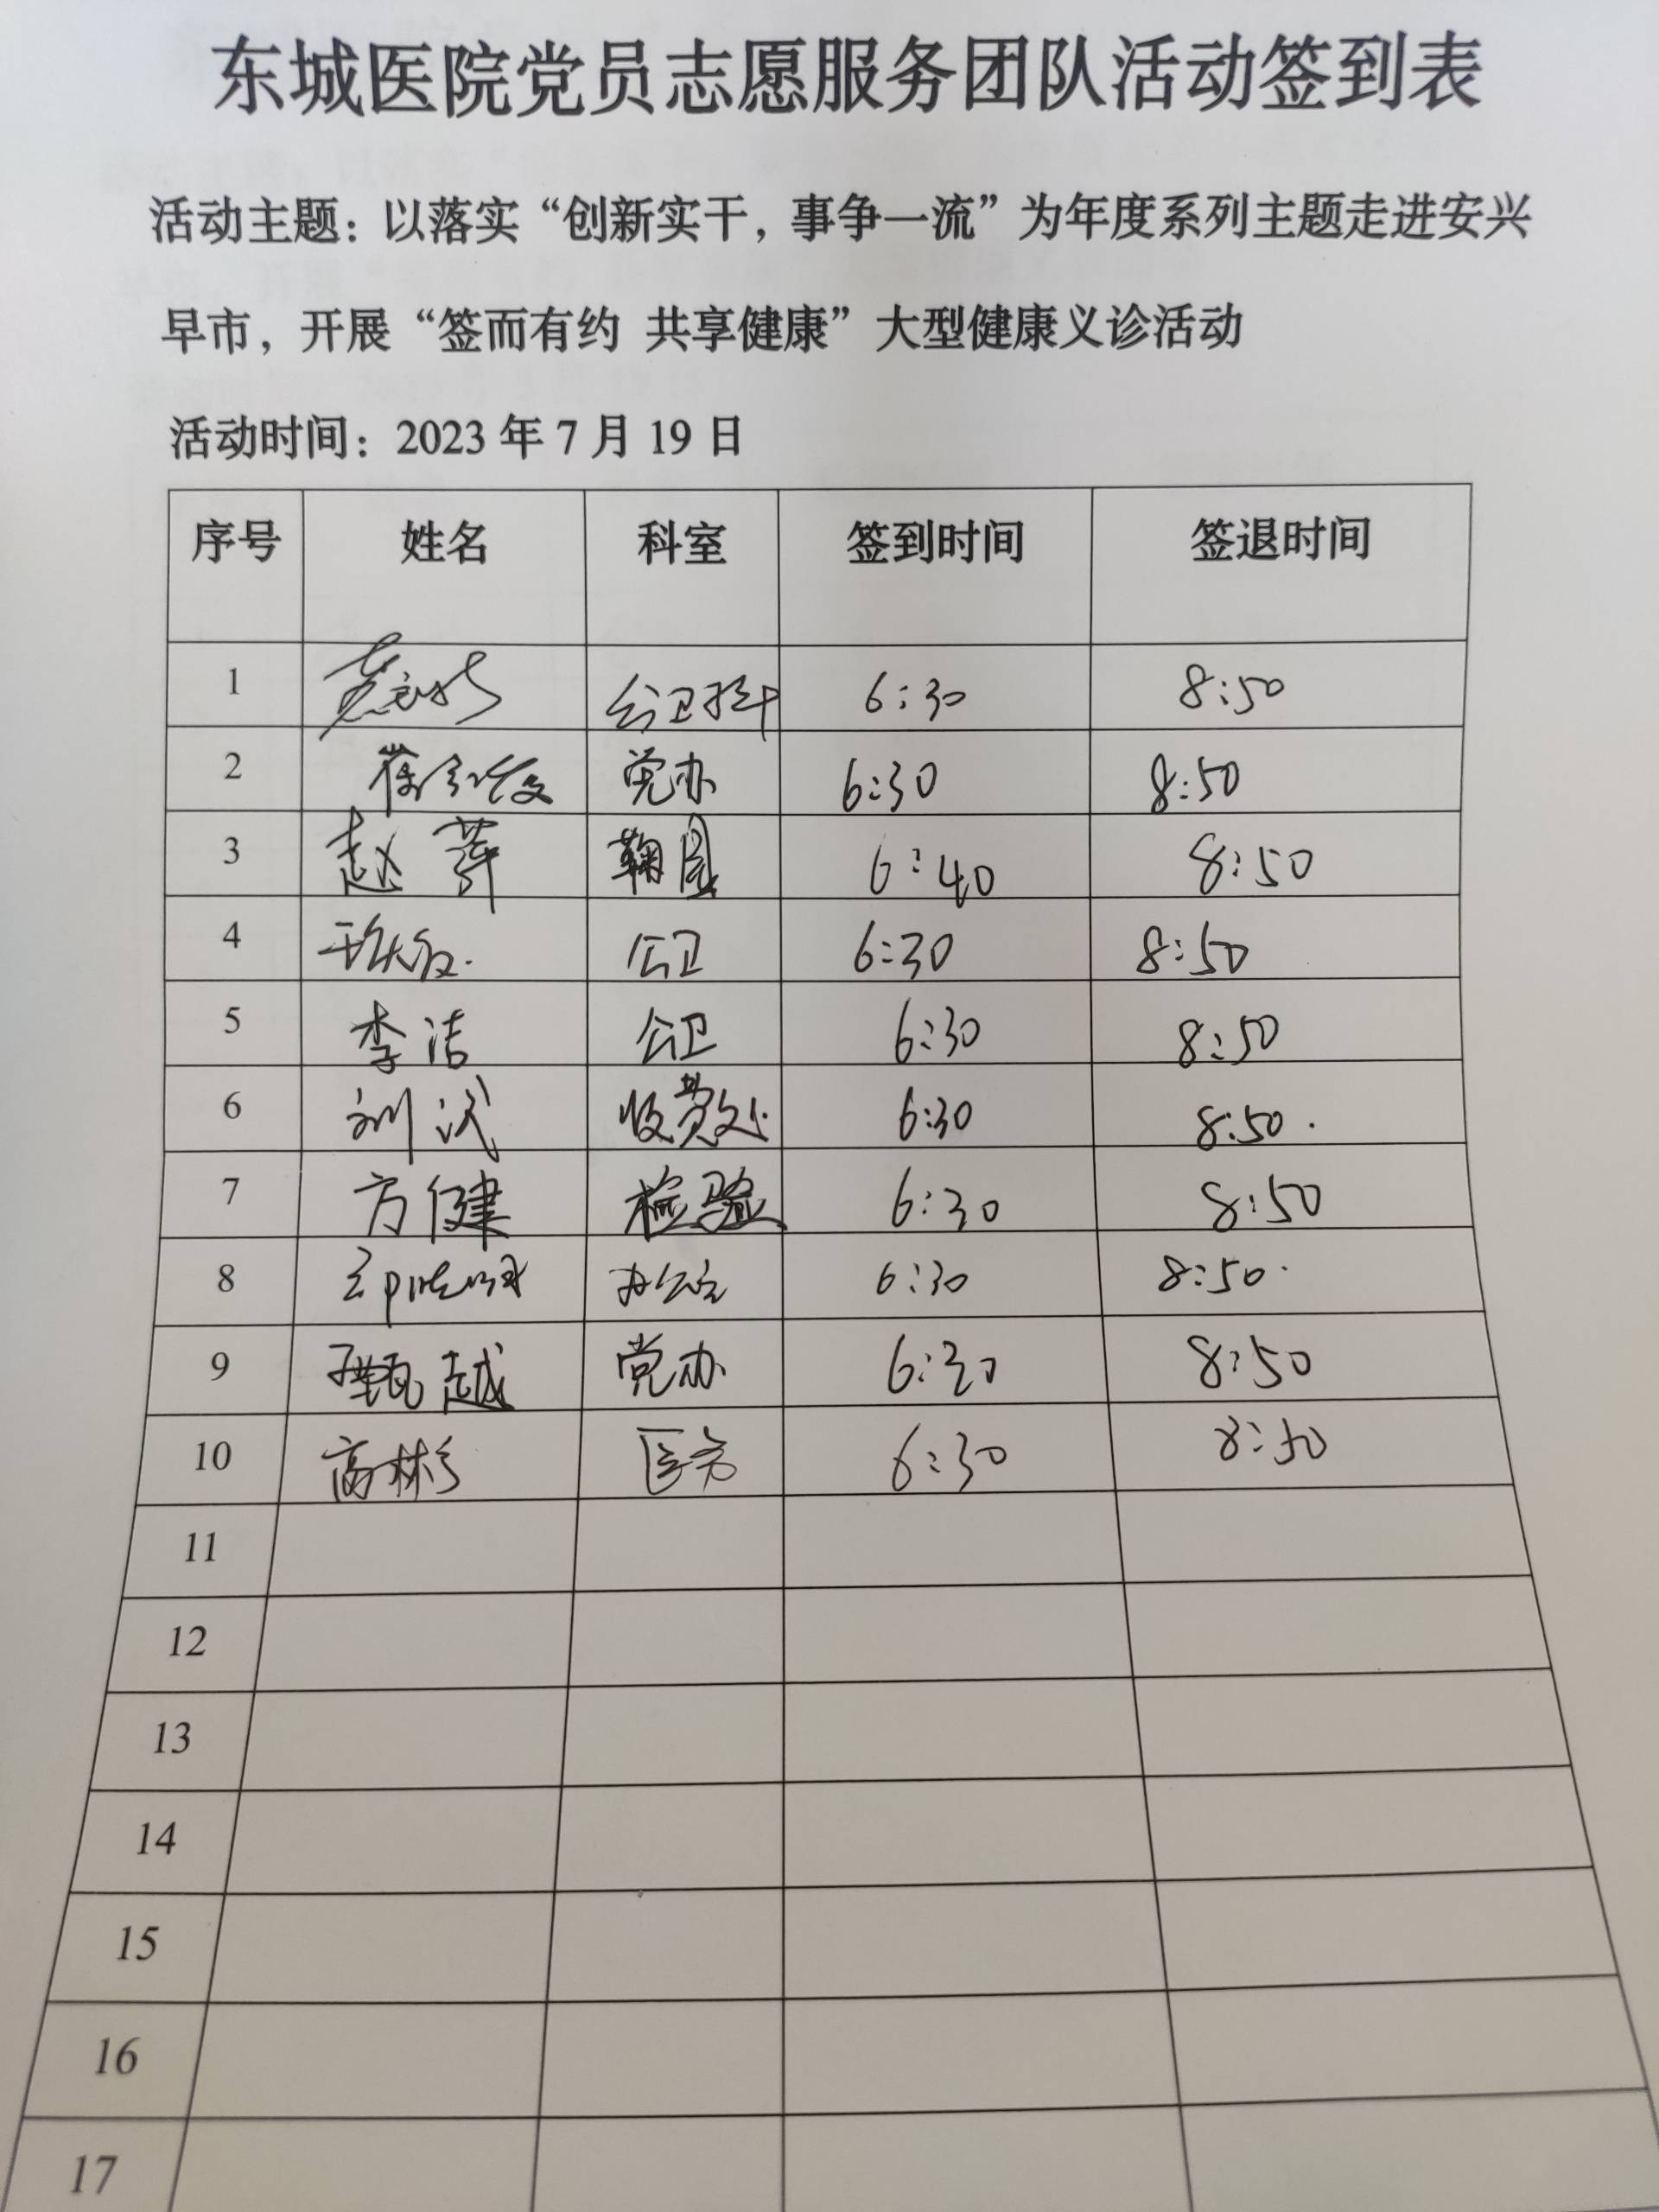 东城医院党员志愿服务团队活动签到表
活动主题：以落实“创新实干，事争一流”为年度系列主题走进安兴
早市，开展“签而有约 共享健康”大型健康义诊活动
活动时间：2023 年 7 月 19 日
序号 姓名 科室 签到时间 签退时间
1 公卫科 6:30 8:50
2 党办 6:30 8:50
3 赵萍 6:40 8:50
4 公卫 6:30 8:50
5 李洁 公卫 6:30 8:50
6 刘 收费处 6:30 8:50.
7 方健 检验 6:30 8:50
8 办公室 6:30 8:50.
9 甄越 党办 6:30 8:50
10 高彬彬 医务 6:30 8:50
11
12
13
14
15
16
17